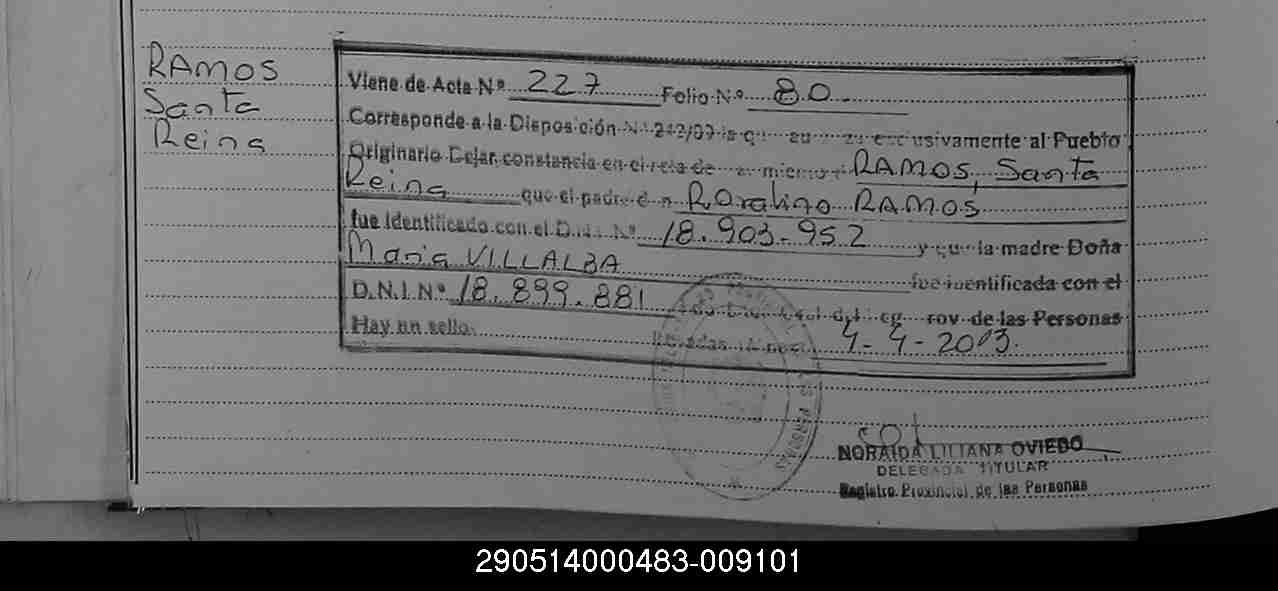 RAMOS
Santa
Reina
Viene de Acta Nº 227 Folio Nº 80
Corresponde a la Disposición Nº 242/09 exclusivamente al Pueblo
Originario Dejar constancia en el RAMOS, Santa
Reina que el padre RAMOS
fue identificado con el D.N.I. Nº 18.903.952 y que la madre Doña
Maria VILLALBA fue identificada con el
D.N.I Nº 18.899.881 de las Personas
Hay un sello. 4-4-2013.
NORAIDA LILIANA OVIEDO
DELEGADA TITULAR
Registro Provincial de las Personas
290514000483-009101